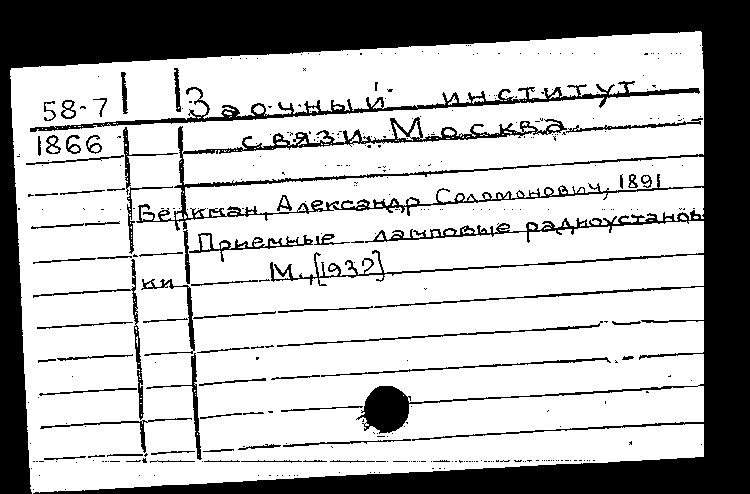 58-7 Заочный институт
1866 связи. Москва
Беркман, Александр Соломонович, 1891
Приемные ламповые радиоустанов
ки М., [193?].